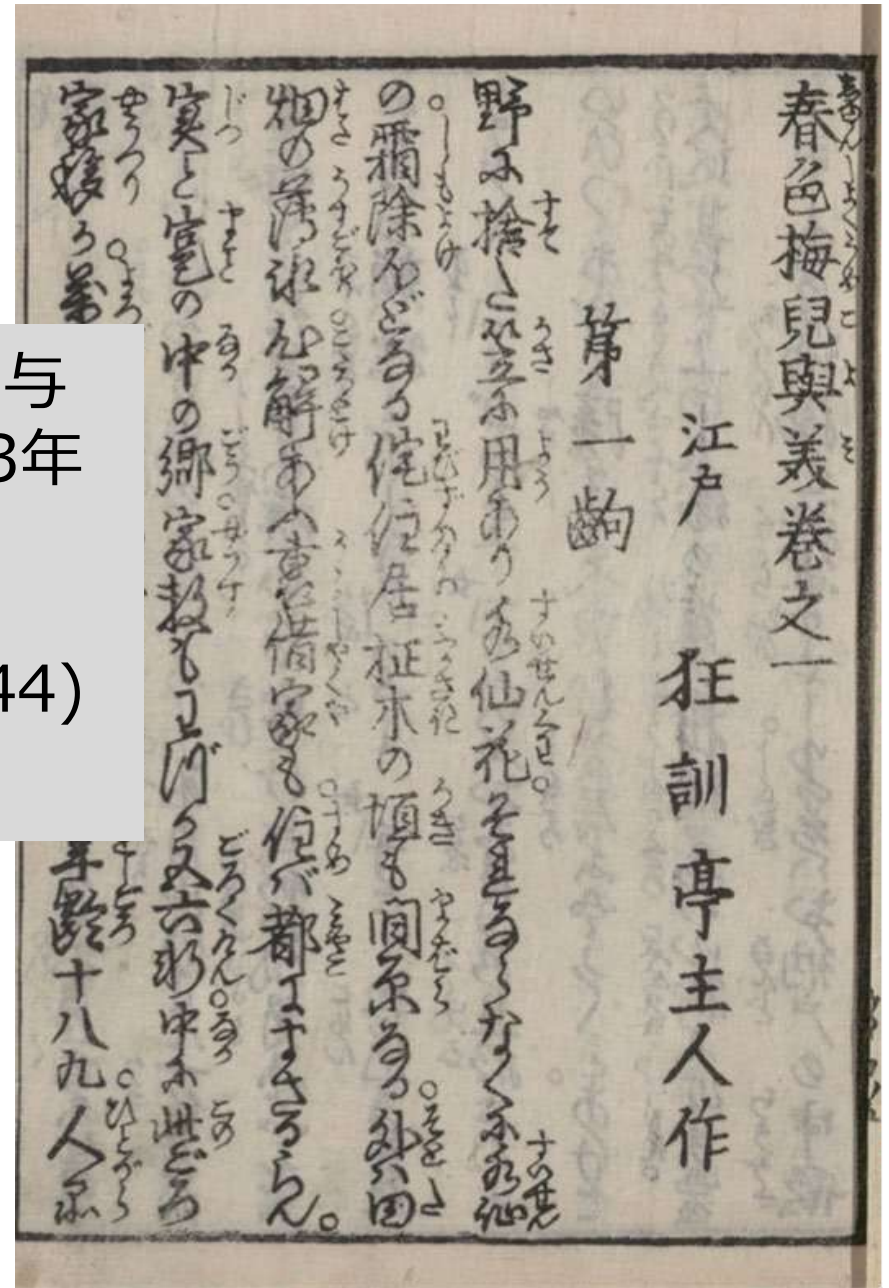 春色梅兒與美巻之一
江戸 狂訓亭主人作
第一齣
野に捨た笠に用あり水仙花それならなくに水仙
の霜除ほどなる侘住居柾木の垣も間原なる。外は田
畑の薄氷心解あふ裏借家も。住ば都にまさるらん。
実と寔の中の郷。家数もわづか五六軒。中に此ごろ
家移か。萬
年齢十八九。人品
与
3年
44)